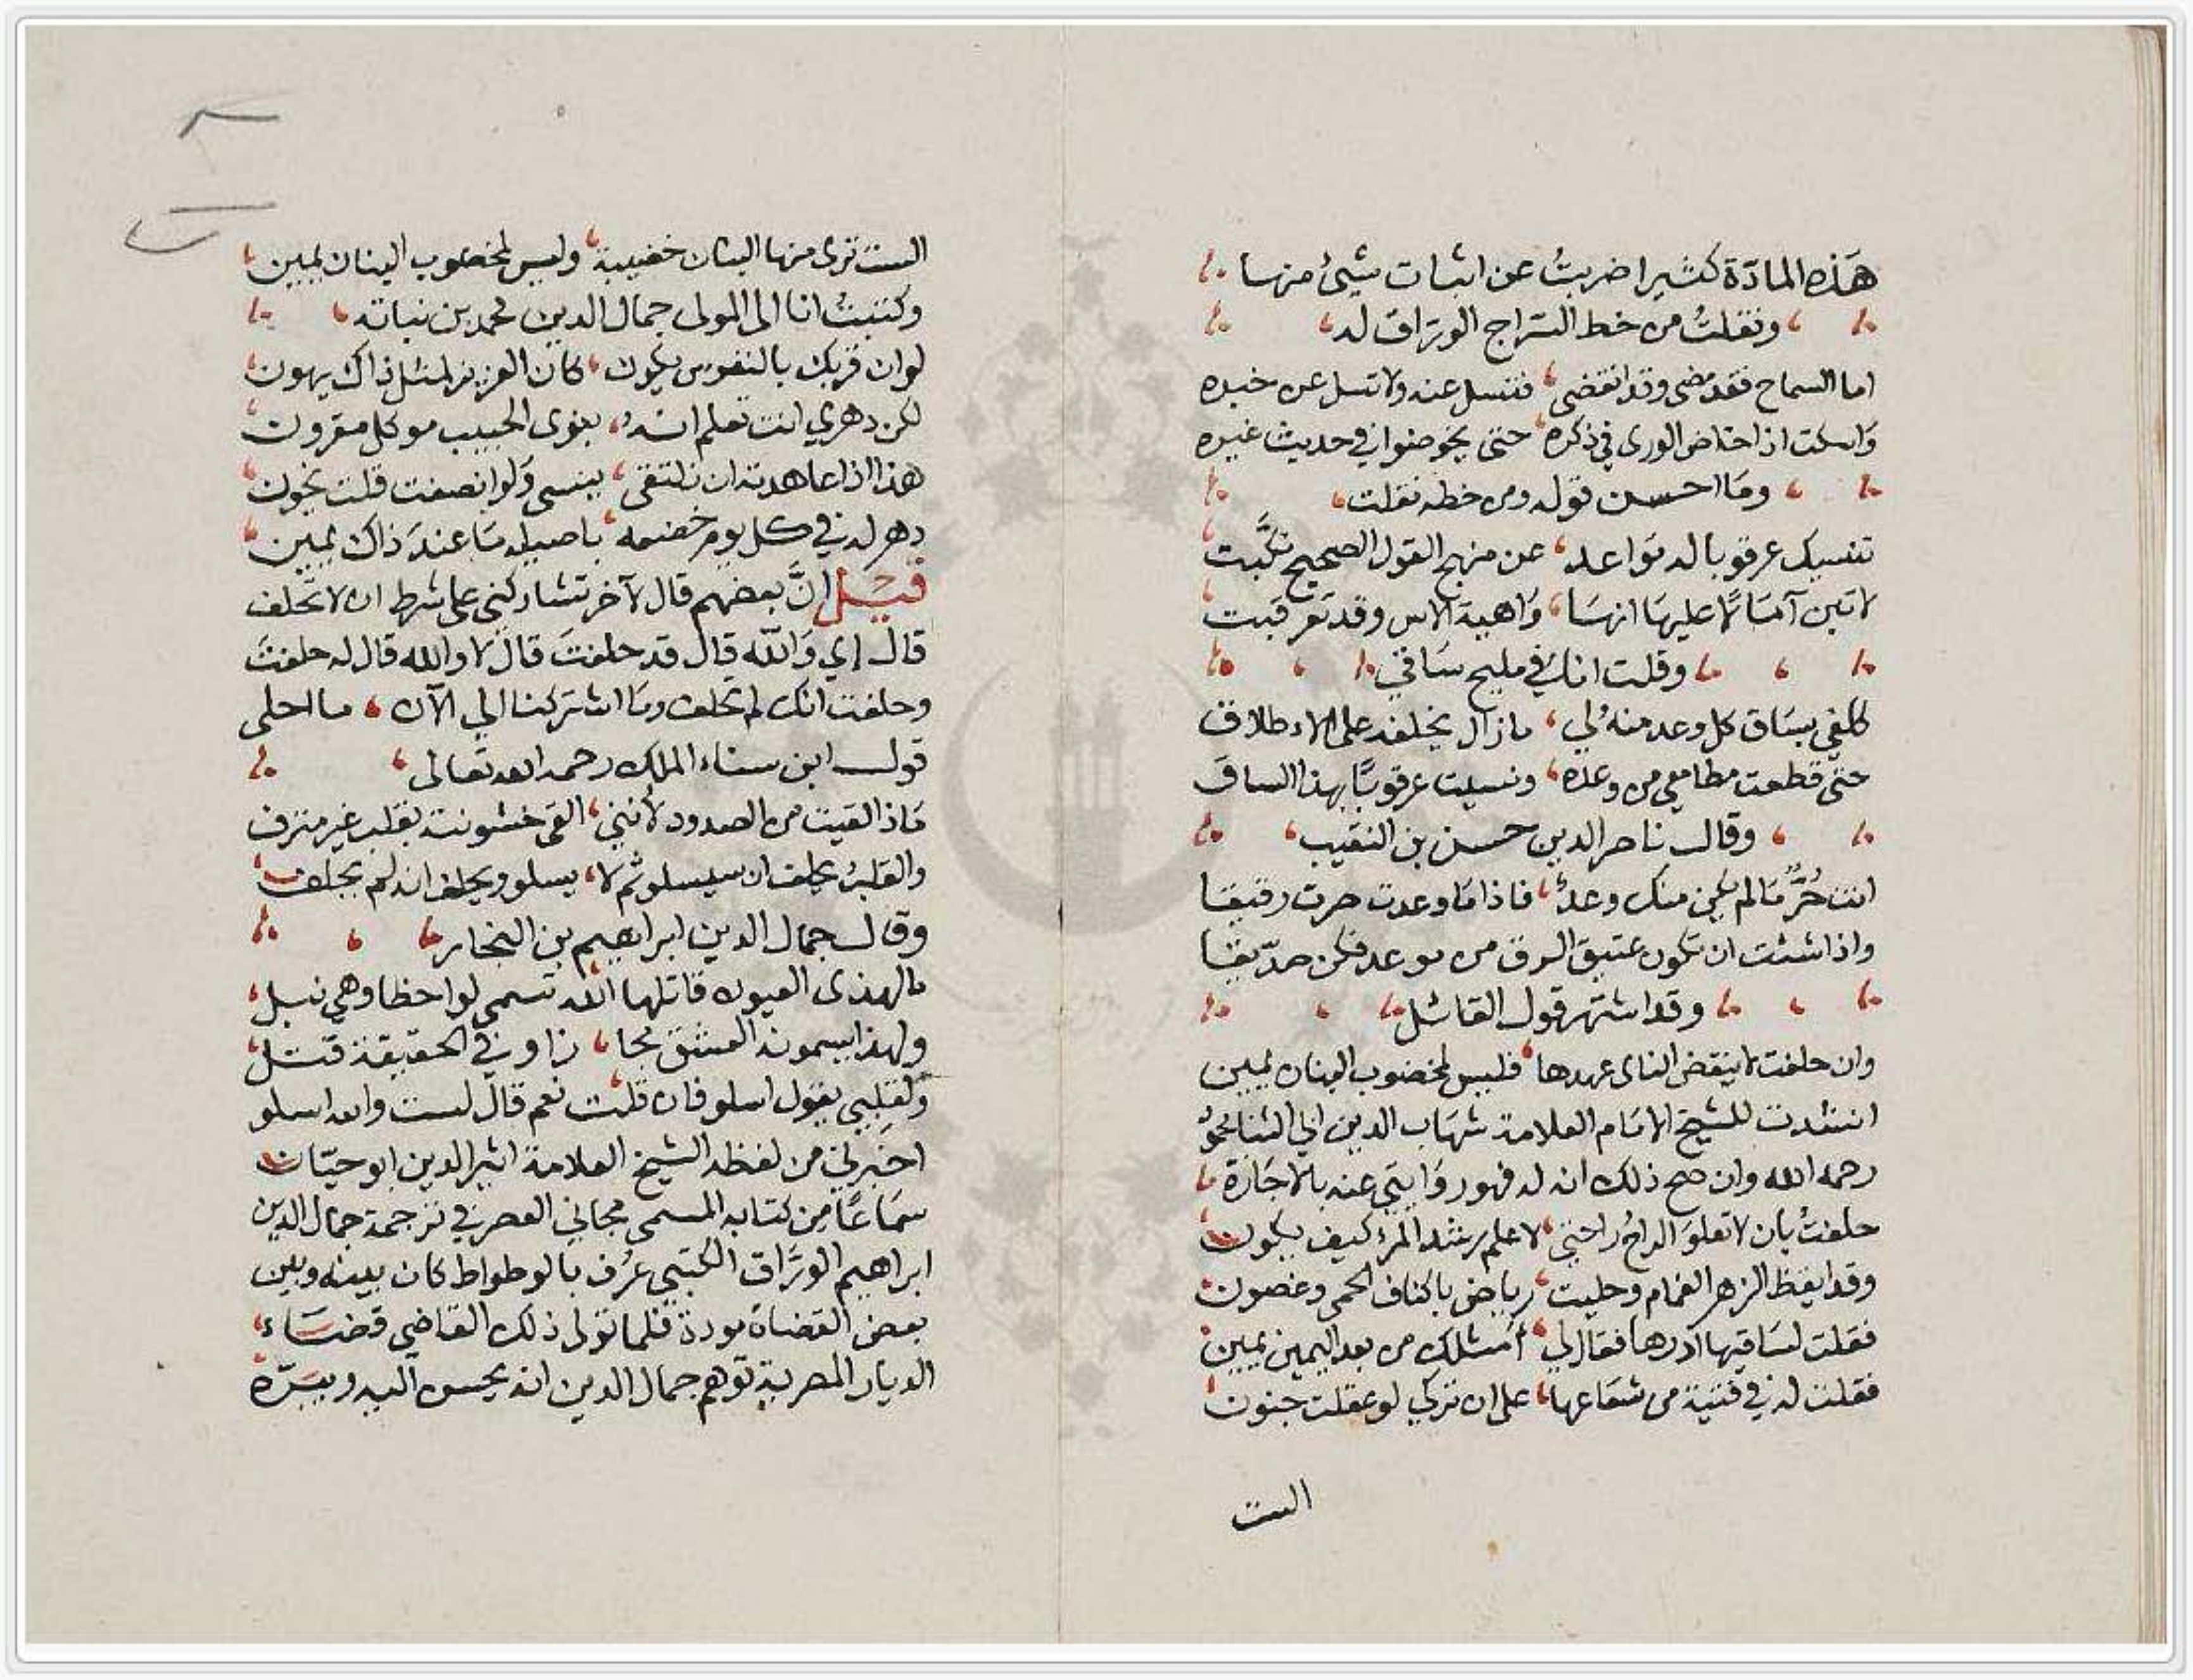 هذه المادة كثيرا ضربت عن اثبات شيئ منها
ونقلت من خط السراج الوراق له
اما السماح فقد مضى وقد انقضى فتسل عنه ولا تسل عن خبره
واسكت اذا خاض الورى في ذكره حتى يخوضوا في حديث غيره
وما احسن قوله ومن خطه نقلت
تنسيك عرقوبا له مواعد عن منهج القول الصحيح نكبت
لا تبن آمالا عليها انها واهية الاس وقد تعرقبت
وقلت انا في مليح ساقي
كلفي بساق كل وعد منه لي ما زال يخلفه على الاطلاق
حتى قطعت مطامعي من وعده ونسيت عرقوبا بهذا الساق
وقال ناصر الدين حسن بن النقيب
انت حُرٌّ ما لم يكن منك وعد فاذا ما وعدت صرت رقيقا
واذا شئت ان تكون عتيق الرق من موعد فكن صدّيقا
وقد اشتهر قول القائل
وان حلفت لا ينقض الناى عهدها فليس لمخضوب البنان يمين
انشدت للشيخ الامام العلامة شهاب الدين ابي الثنا محمود
رحمه الله وان صح ذلك انه له فهو روايتي عنه بالاجازة
حلفت بان لا تعلو الراح راحتي لاعلم رشد المرء كيف يكون
وقد ايقظ الزهر الغمام وحليت رياض باكناف الحمى وغصون
فقلت لساقيها ادرها فقال لي أمثلك من بعد اليمين يمين
فقلت له في فتية من شعاعها على ان تركي لو عقلت جنون
الست
الست ترى منها البنان خضيبة وليس لمخضوب البنان يمين
وكتبت انا الى المولى جمال الدين محمد بن نباته
لو ان قربك بالنفوس يكون كان العزيز لمثل ذاك يهون
لكن دهري انت تعلم انه بنوى الحبيب موكل مقرون
هذا اذا عاهدته ان نلتقى ينسى ولو انصفت قلت يخون
دهر له في كل يوم خضمه باصيله ما عند ذاك يمين
قيل إنَّ بعضهم قال لآخر تشاركني على شرط ان لا تحلف
قال إي والله قال قد حلفت قال لا والله قال له حلفت
وحلفت انك لم تحلف وما اشتركنا الي الآن ما احلى
قول ابن سناء الملك رحمه الله تعالى
ماذا لقيت من الصدود لأنني القى خشونته بقلب غير مترف
والقلب يحلف ان سيسلو ثم لا يسلو ويحلف انه لم يحلف
وقال جمال الدين ابراهيم بن النجار
ما لهذى العيون قاتلها الله تسمى لواحظا وهي نبل
ولهذا يسمونه العشق مجا زا وفي الحقيقة قتل
ولقلبي يقول اسلو فان قلت نعم قال لست والله اسلو
اخبرني من لفظه الشيخ العلامة اثير الدين ابو حيّان
سماعاً من كتابه المسمى مجاني العصر في ترجمة جمال الدين
ابراهيم الورّاق الكتبي عرف بالوطواط كان بينه وبين
بعض القضاة مودة فلما تولى ذلك القاضي قضاء
الديار المصرية توهم جمال الدين انه يحسن اليه ويبرّه